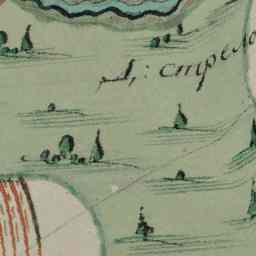 д: стрело